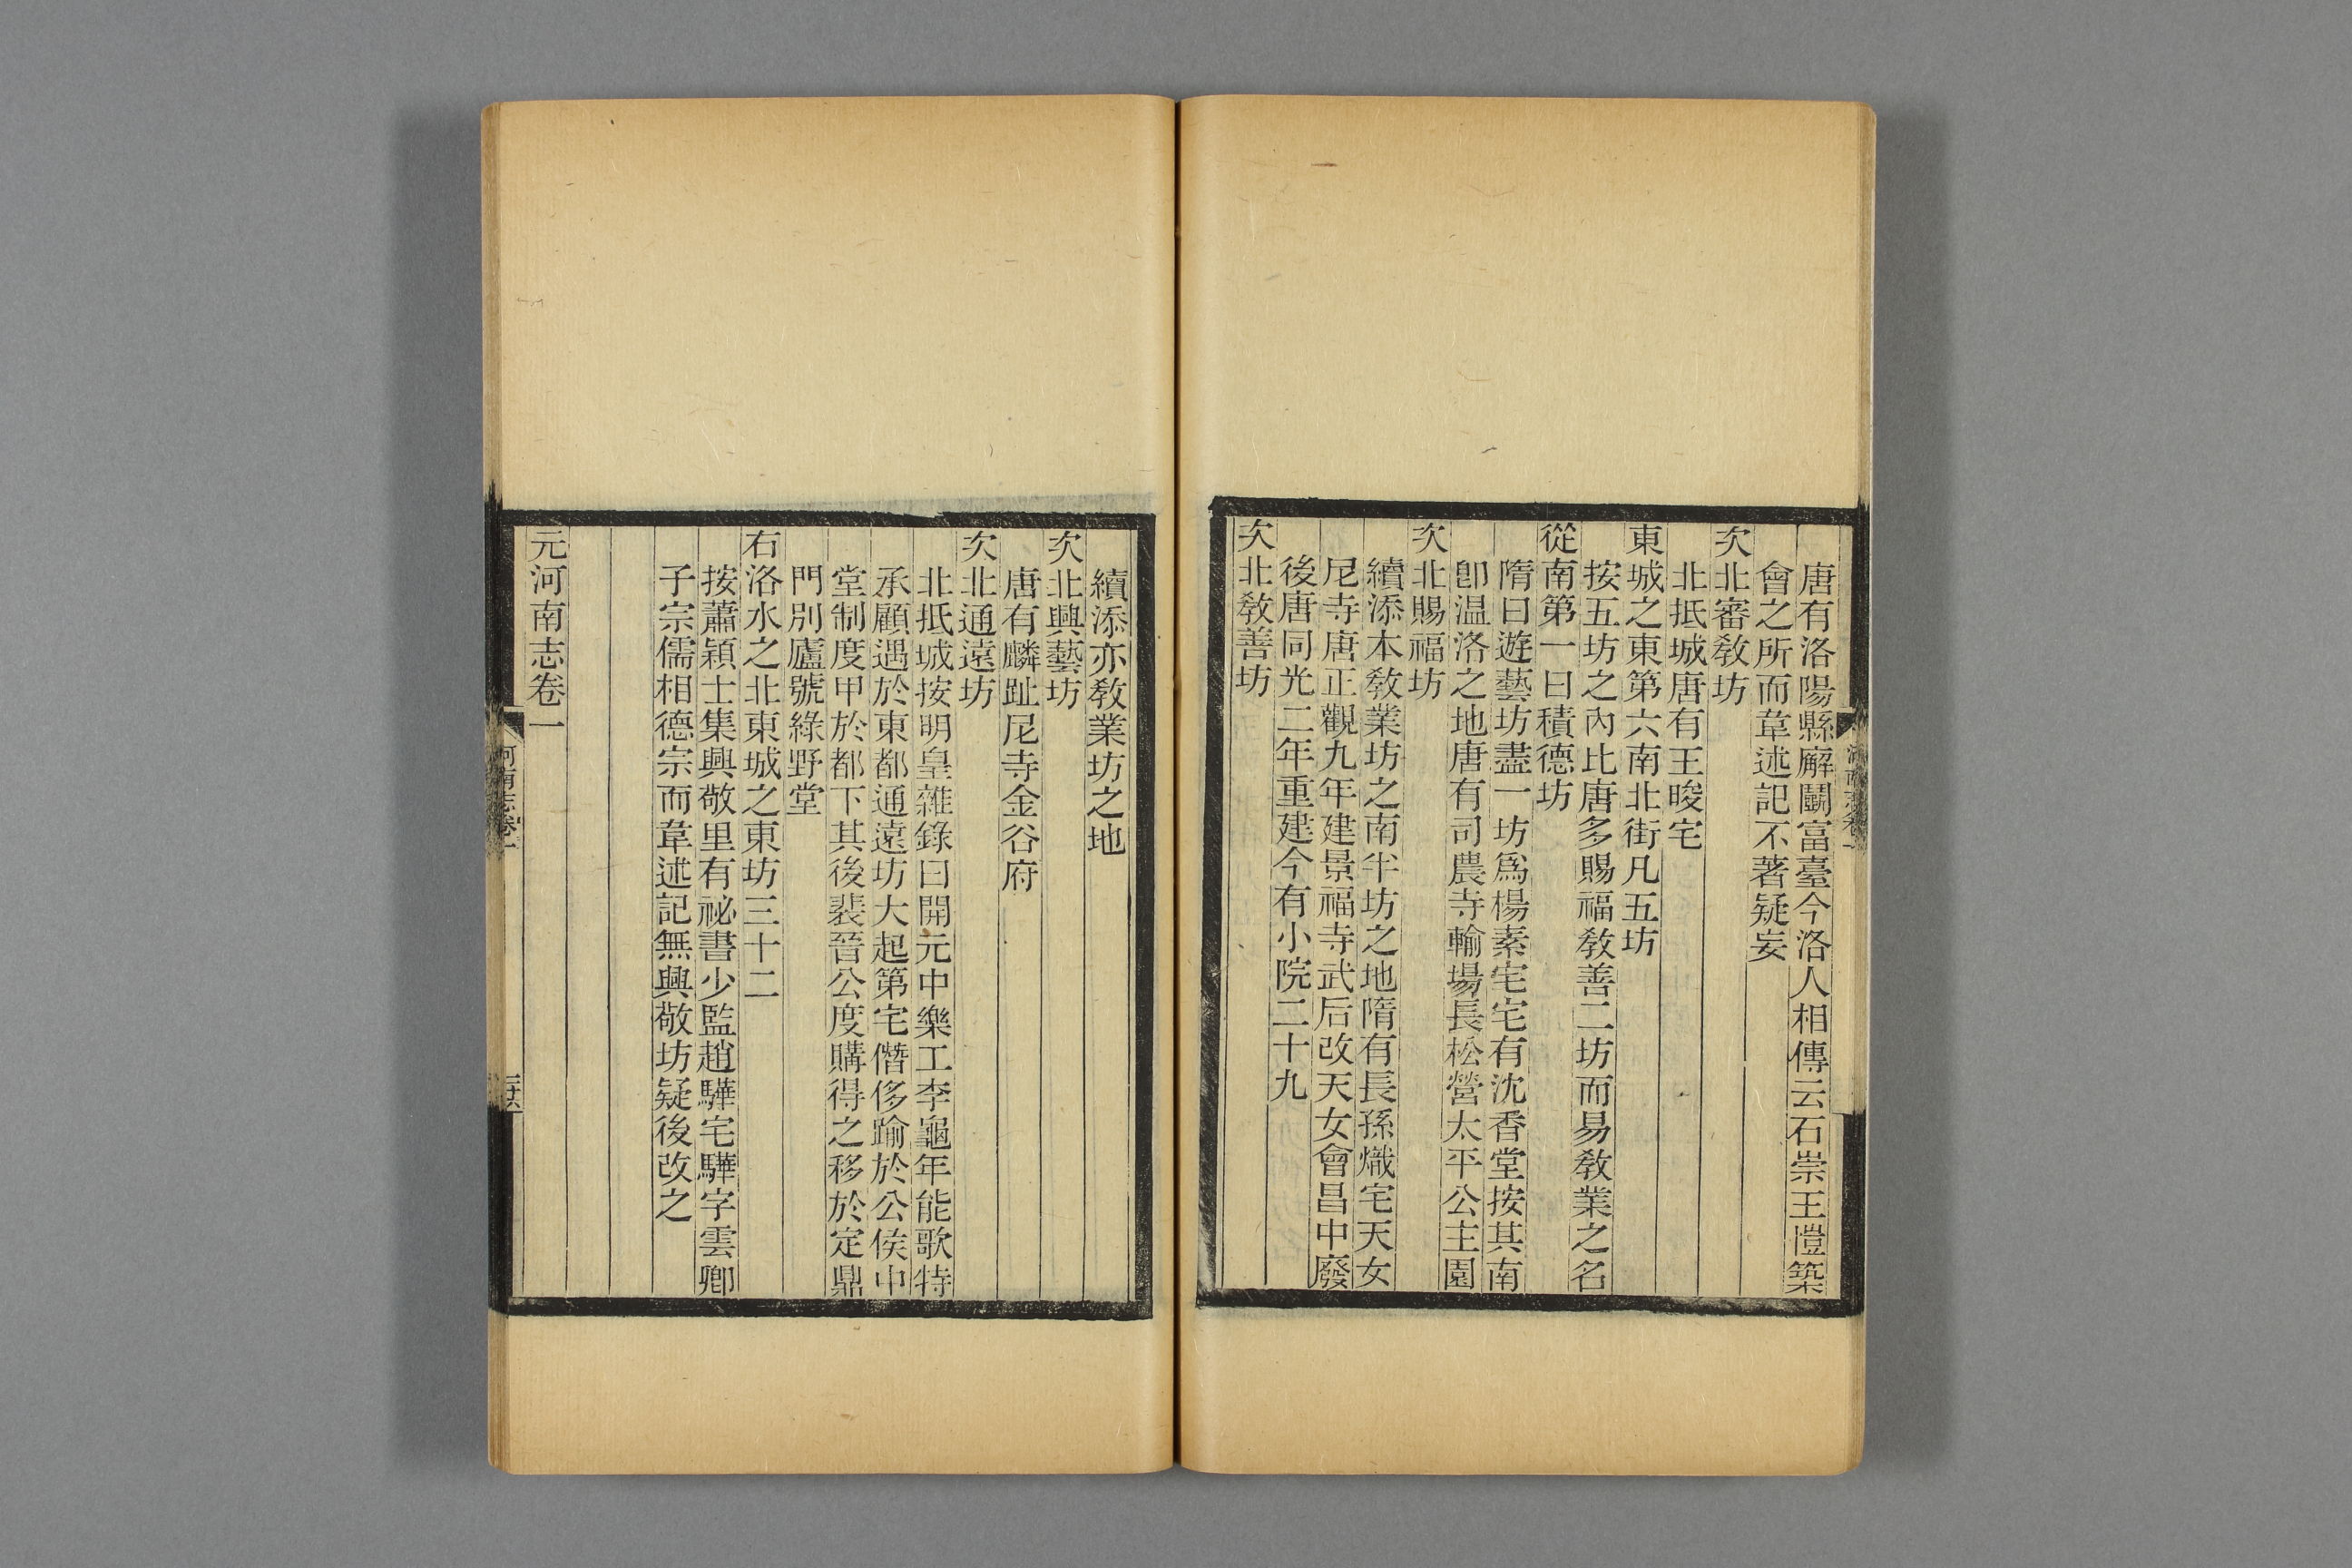 唐有洛陽縣廨鬬富臺今洛人相傳云石崇王愷築
會之所而韋述記不著疑妄
次北審敎坊
北抵城唐有王晙宅
東城之東第六南北街凡五坊
按五坊之內比唐多賜福敎善二坊而易敎業之名
從南第一曰積德坊
隋曰遊藝坊盡一坊爲楊素宅宅有沈香堂按其南
卽温洛之地唐有司農寺輸場長松營太平公主園
次北賜福坊
續添本敎業坊之南半坊之地隋有長孫熾宅天女
尼寺唐正觀九年建景福寺武后改天女會昌中廢
後唐同光二年重建今有小院二十九
次北敎善坊
續添亦敎業坊之地
次北興藝坊
唐有麟趾尼寺金谷府
次北通遠坊
北抵城按明皇雜錄曰開元中樂工李龜年能歌特
承顧遇於東都通遠坊大起第宅僭侈踰於公侯中
堂制度甲於都下其後裴晉公度購得之移於定鼎
門別廬號綠野堂
右洛水之北東城之東坊三十二
按蕭穎士集興敬里有祕書少監趙驊宅驊字雲卿
子宗儒相德宗而韋述記無興敬坊疑後改之
元河南志卷一
河南志卷一